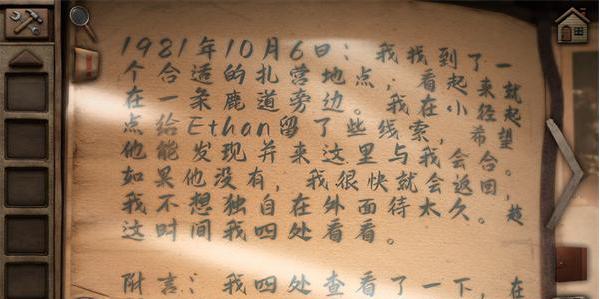 1981年10月6日：我找到了一
个合适的扎营地点；看起来就
在一条鹿道旁边。我在小径起
点给Ethan留了些线索，希望
他能发现并来这里与我会合。
如果他没有，我很快就会返回，
我不想独自在外面待太久。趁
这时间我四处看看。
附言：我四处查看了一下，在